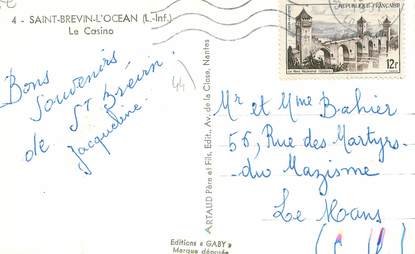 4 - SAINT-BREVIN-L'OCEAN (L.-Inf.)
Le Casino
Bons
souvenirs
de St Brévin.
Jacqueline.
44
ARTAUD Père et Fils, Edit., Av. de la Close, Nantes
Editions « GABY »
Marque déposée
12f
Mr et Mme Bahier
56, Rue des Martyrs
du Nazisme
Le Mans